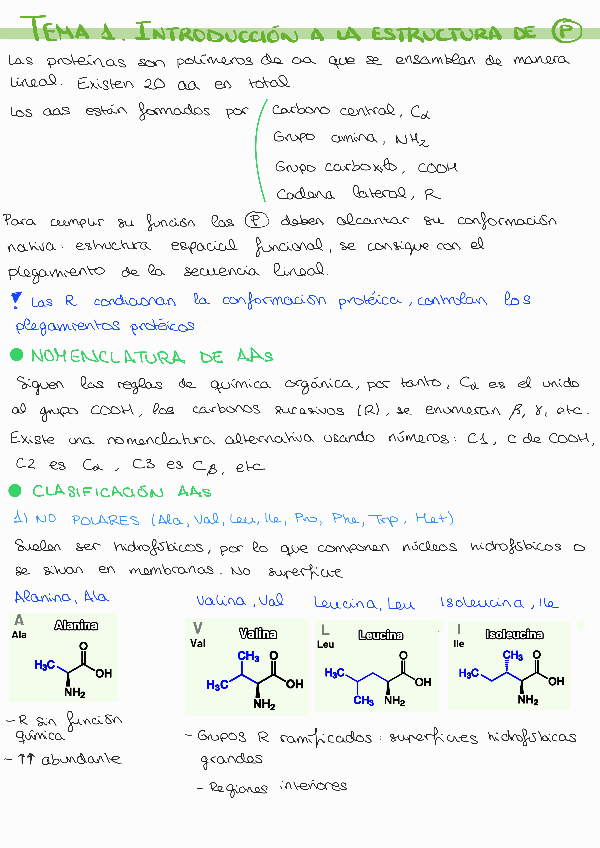 TEMA 1. INTRODUCCIÓN A LA ESTRUCTURA DE Ⓟ
Las proteínas son polímeros de aa que se ensamblan de manera
lineal. Existen 20 aa en total
Los aas están formados por
Carbono central, Cα
Grupo amina, NH2
Grupo carboxilo, COOH
Cadena lateral, R
Para cumplir su función las Ⓟ deben alcanzar su conformación
nativa: estructura espacial funcional, se consigue con el
plegamiento de la secuencia lineal.
! Las R condicionan la conformación protéica, controlan los
plegamientos protéicos
● NOMENCLATURA DE AAs
Siguen las reglas de química orgánica, por tanto, Cα es el unido
al grupo COOH, los carbonos sucesivos (R), se enumeran β, γ, etc.
Existe una nomenclatura alternativa usando números: C1, C de COOH,
C2 es Cα, C3 es Cβ, etc
● CLASIFICACIÓN AAs
1) NO POLARES (Ala, Val, Leu, Ile, Pro, Phe, Trp, Met)
Suelen ser hidrofóbicos, por lo que componen núcleos hidrofóbicos o
se situan en membranas. No superficie
Alanina, Ala
Valina, Val
Leucina, Leu
Isoleucina, Ile
A
Ala
Alanina
H3C
O
OH
NH2
V
Val
Valina
CH3
O
H3C
OH
NH2
L
Leu
Leucina
O
H3C
OH
CH3
NH2
I
Ile
Isoleucina
CH3
O
H3C
OH
NH2
- R sin función
química
- ↑↑ abundante
- Grupos R ramificados: superficies hidrofóbicas
grandes
- Regiones interiores